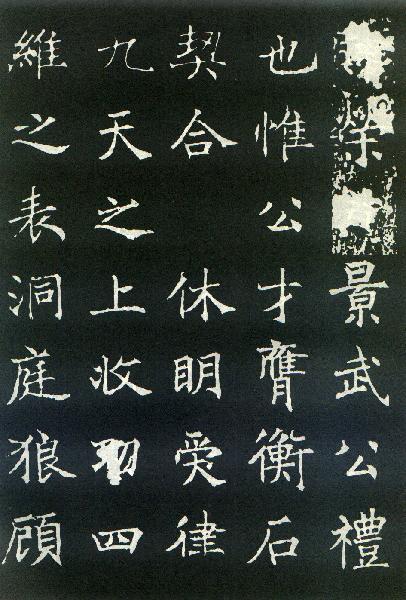 景武公禮
也惟公才膺衡石
契合休明爰律
九天之上收四
維之表洞庭狼顧